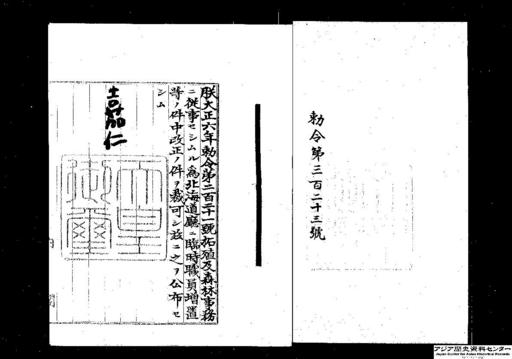 勅令第三百二十三號
朕大正六年勅令第二百二十一號拓殖及森林事務
ニ從事セシムル爲北海道廳ニ臨時職員增置
等ノ件中改正ノ件ヲ裁可シ茲ニ之ヲ公布セ
シム
嘉仁
天皇御璽
アジア歴史資料センター
Japan Center for Asian Historical Records